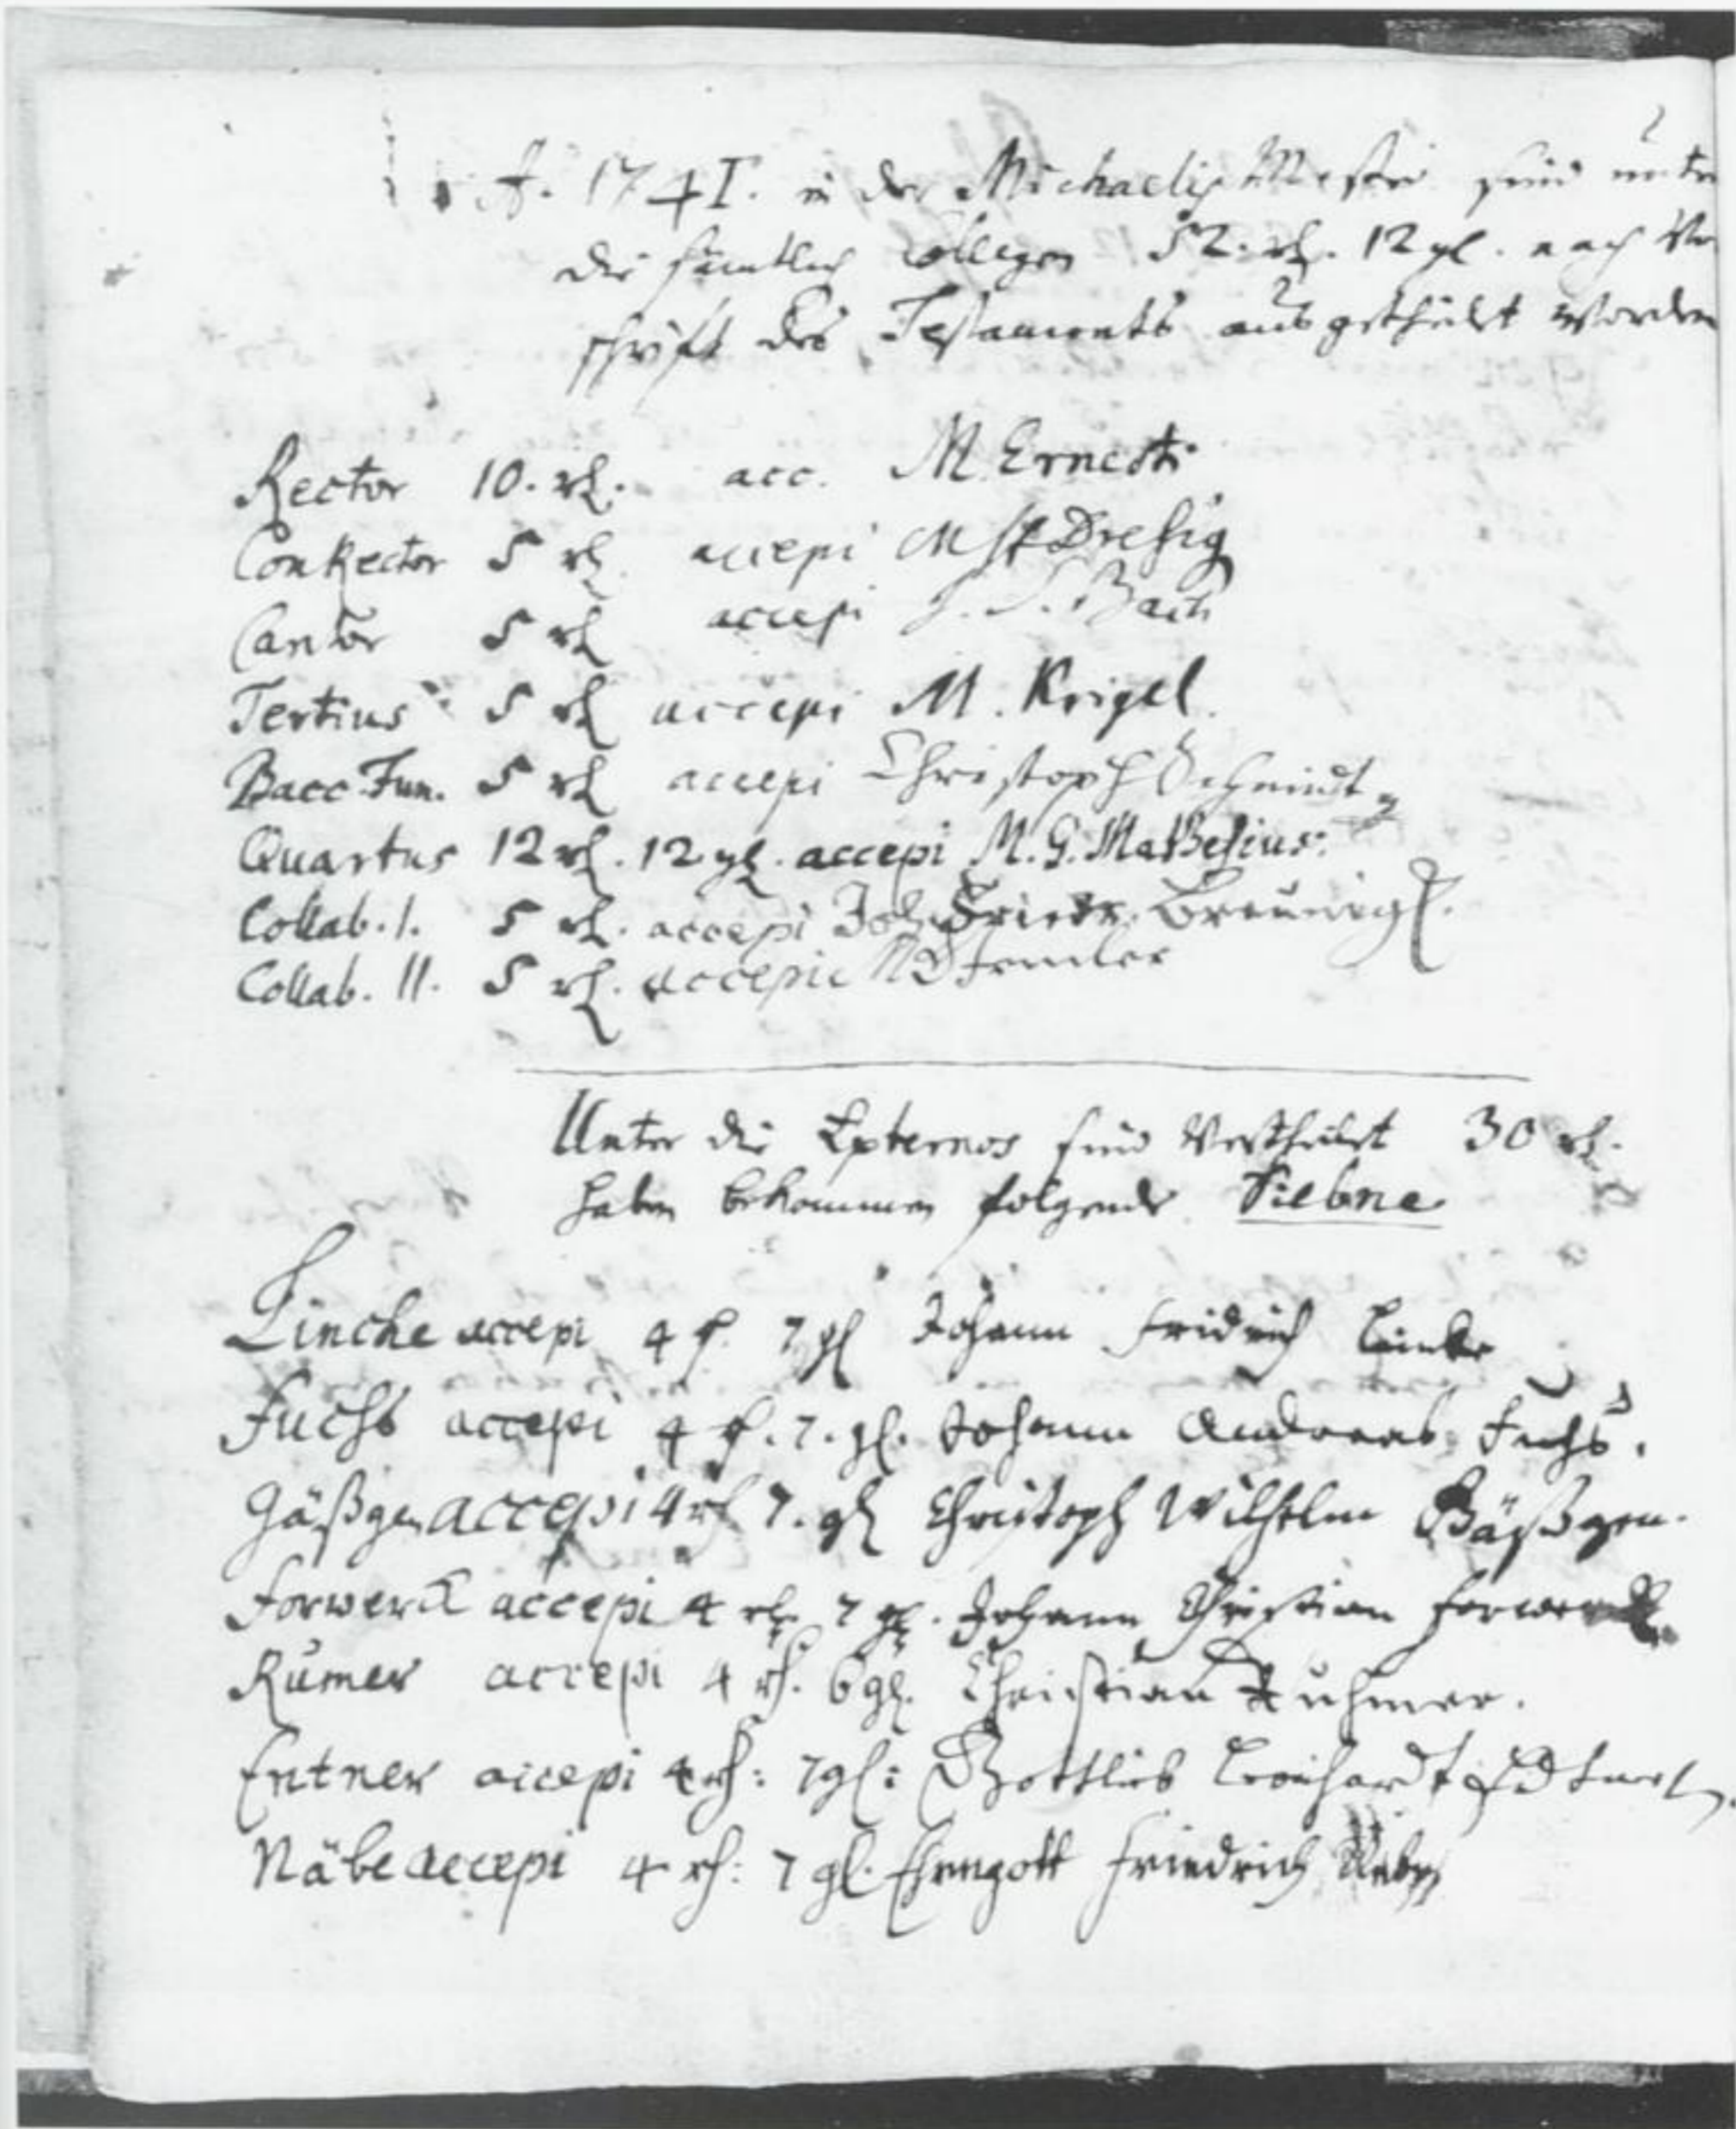 A. 1741. in der Michaelis Messe sind unter
die sämtlichen Collegen 52. rl. 12 gl. nach Vor
schrifft des Testaments ausgetheilet worden
Rector 10. rl. acc. M. Ernesti
ConRector 5 rl. accepi M Dresig
Cantor 5 rl accepi J. S. Bach
Tertius 5 rl accepi M. Krigel.
Bacc. Fun. 5 rl accepi Christoph Schmidt
Quartus 12 rl. 12 gl. accepi M. G. Matthesius.
Collab. I. 5 rl. accepi Joh. Friedr. Breunigk.
Collab. II. 5 rl. accepi
Unter die Externos sind vertheilet 30 rl.
haben bekommen folgende Siebne
Lincke accepi 4 rl. 7 gl Johann Fridrich Lincke
Fuchs accepi 4 rl. 7. gl. Johann Andreas Fuchs.
Gäßgen accepi 4 rl 7. gl Christoph Wilhelm Gäßgen.
Forwerck accepi 4 rl. 7 gl. Johann Christian Forwerck.
Rümer accepi 4 rl. 6 gl. Christian Ruhmer.
Entner accepi 4 rl: 7 gl: Gottlieb Leonhardt
Näbe accepi 4 rl: 7 gl. Ehrngott Friedrich